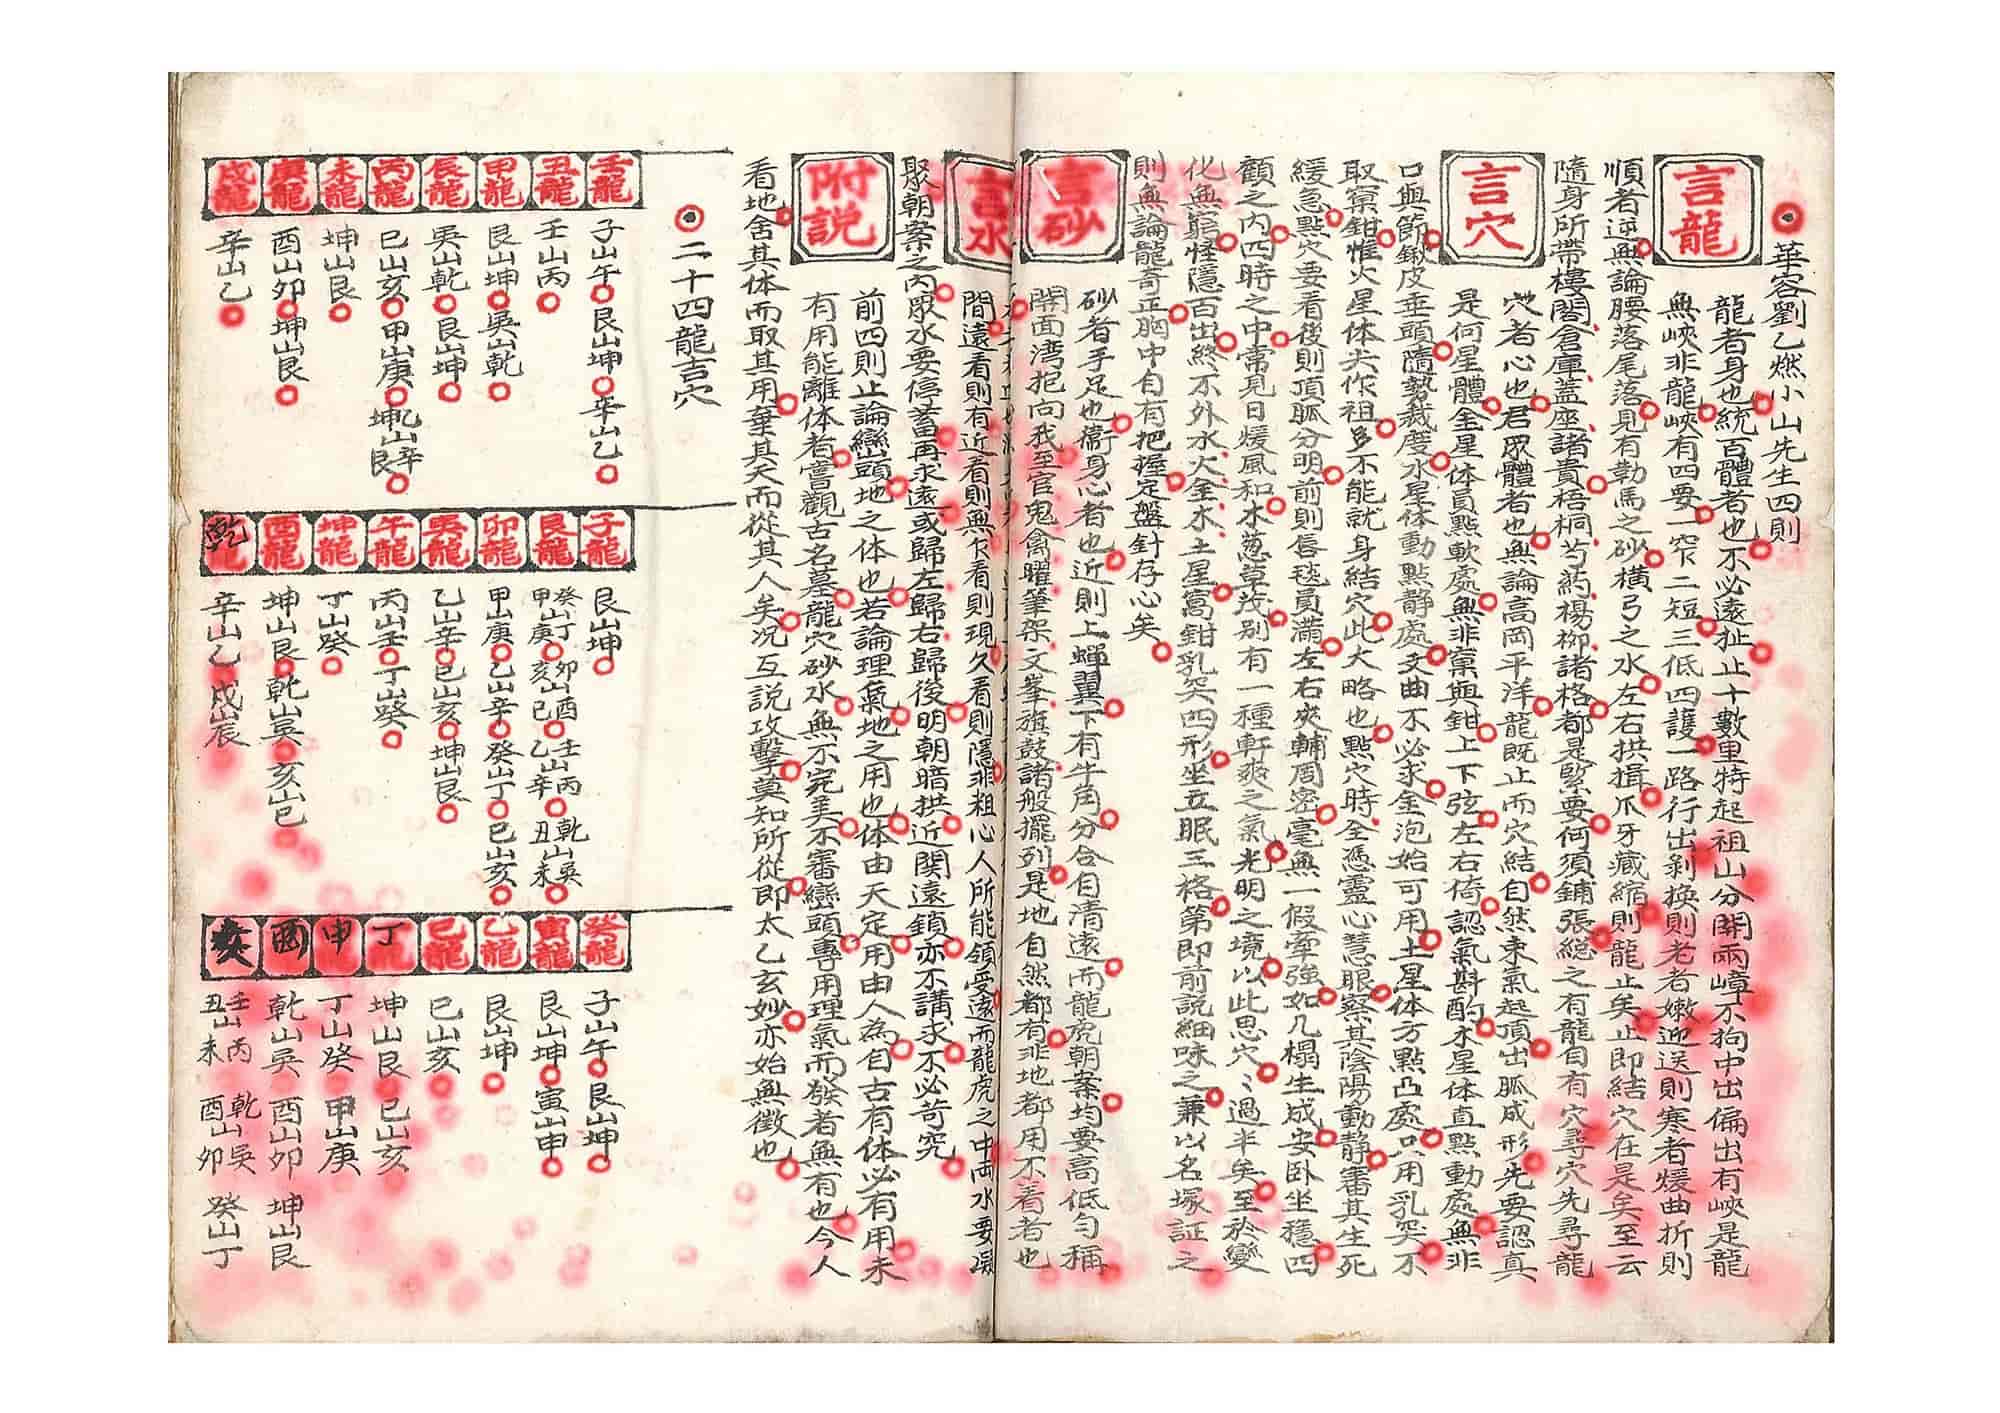 華容劉乙燃小山先生四則
言龍
龍者身也統百體者也不必遠扯止十數里特起祖山分開兩嶂不拘中出偏出有峽是龍
無峽非龍峽有四要一窄二短三低四護一路行出剝換則老者嫩迎送則寒者煖曲折則
順者逆無論腰落尾落見有勒馬之砂橫弓之水左右拱揖爪牙藏縮則龍止矣止即結穴在是矣至云
隨身所帶樓閣倉庫蓋座諸貴梧桐芍药楊柳諸格都是緊要何須鋪張総之有龍自有穴尋穴先尋龍
言穴
穴者心也君眾體者也無論高岡平洋龍既止而穴結自然束氣起頂出脈成形先要認真
是何星體金星体員點軟處無非窠與鉗上下弦左右倚認氣斟酌水星体直點動處無非
口與節鍬皮垂頭隨勢裁度水星体動點静處文曲不必求金泡始可用土星体方點凸處只用乳突不
取窠鉗惟火星体尖作祖多不能就身結穴此大略也點穴時全憑靈心慧眼察其陰陽動静審其生死
緩急點穴要看後則頂脈分明前則唇毯員滿左右夾輔周密毫無一假牽強如几榻生成安卧坐穩四
顧之内四時之中常見日煖風和木葱草茂别有一種軒爽之氣光明之境以此思穴〻過半矣至於變
化無窮怪隱百出終不外水火金木土星窩鉗乳突四形坐立眠三格第即前說細味之兼以名塚証之
則無論龍奇正胸中自有把握定盤針存心矣
言砂
砂者手足也衞身心者也近則上蟬翼下有牛角分合自清遠而龍虎朝案均要高低勻稱
開面湾抱向我至官鬼禽曜筆架文峯旗鼓諸般擺列是地自然都有非地都用不着者也
言水
間遠看則有近看則無乍看則現久看則隱非粗心人所能領受遠而龍虎之中両水要凝
聚朝案之内眾水要停蓄再求遠或歸左歸右歸後明朝暗拱近関遠鎖亦不講求不必苛究
附説
前四則止論巒頭地之体也若論理氣地之用也体由天定用由人為自古有体必有用未
有用能離体者嘗觀古名墓龍穴砂水無不完美不審巒頭專用理氣而發者無有也今人
看地舍其体而取其用棄其天而從其人矣况互説攻擊莫知所從即太乙玄妙亦始無徵也
二十四龍吉穴
壬龍 子山午 艮山坤 辛山乙
丑龍 壬山丙
甲龍 艮山坤 巽山乾
辰龍 巽山乾 艮山坤
丙龍 巳山亥 甲山庚 乙山辛 坤艮
未龍 坤山艮
庚龍 酉山卯 坤山艮
戌龍 辛山乙
子龍 艮山坤
艮龍 癸山丁 甲山庚 卯山酉 亥山巳 壬山丙 乙山辛 乾山巽 丑未
卯龍 甲山庚 乙山辛 癸山丁 巳山亥
巽龍 乙山辛 巳山亥 坤山艮
午龍 丙山壬 丁山癸
坤龍 丁山癸
酉龍 坤山艮 乾山巽 亥山巳
乾龍 辛山乙 戌山辰
癸龍 子山午 艮山坤
寅龍 艮山坤 寅山申
乙龍 艮山坤
巳龍 巳山亥
丁龍 坤山艮 巳山亥
申 丁山癸 甲山庚
酉 乾山巽 酉山卯 坤山艮
亥 壬山丙 丑山未 乾山巽 酉山卯 癸山丁